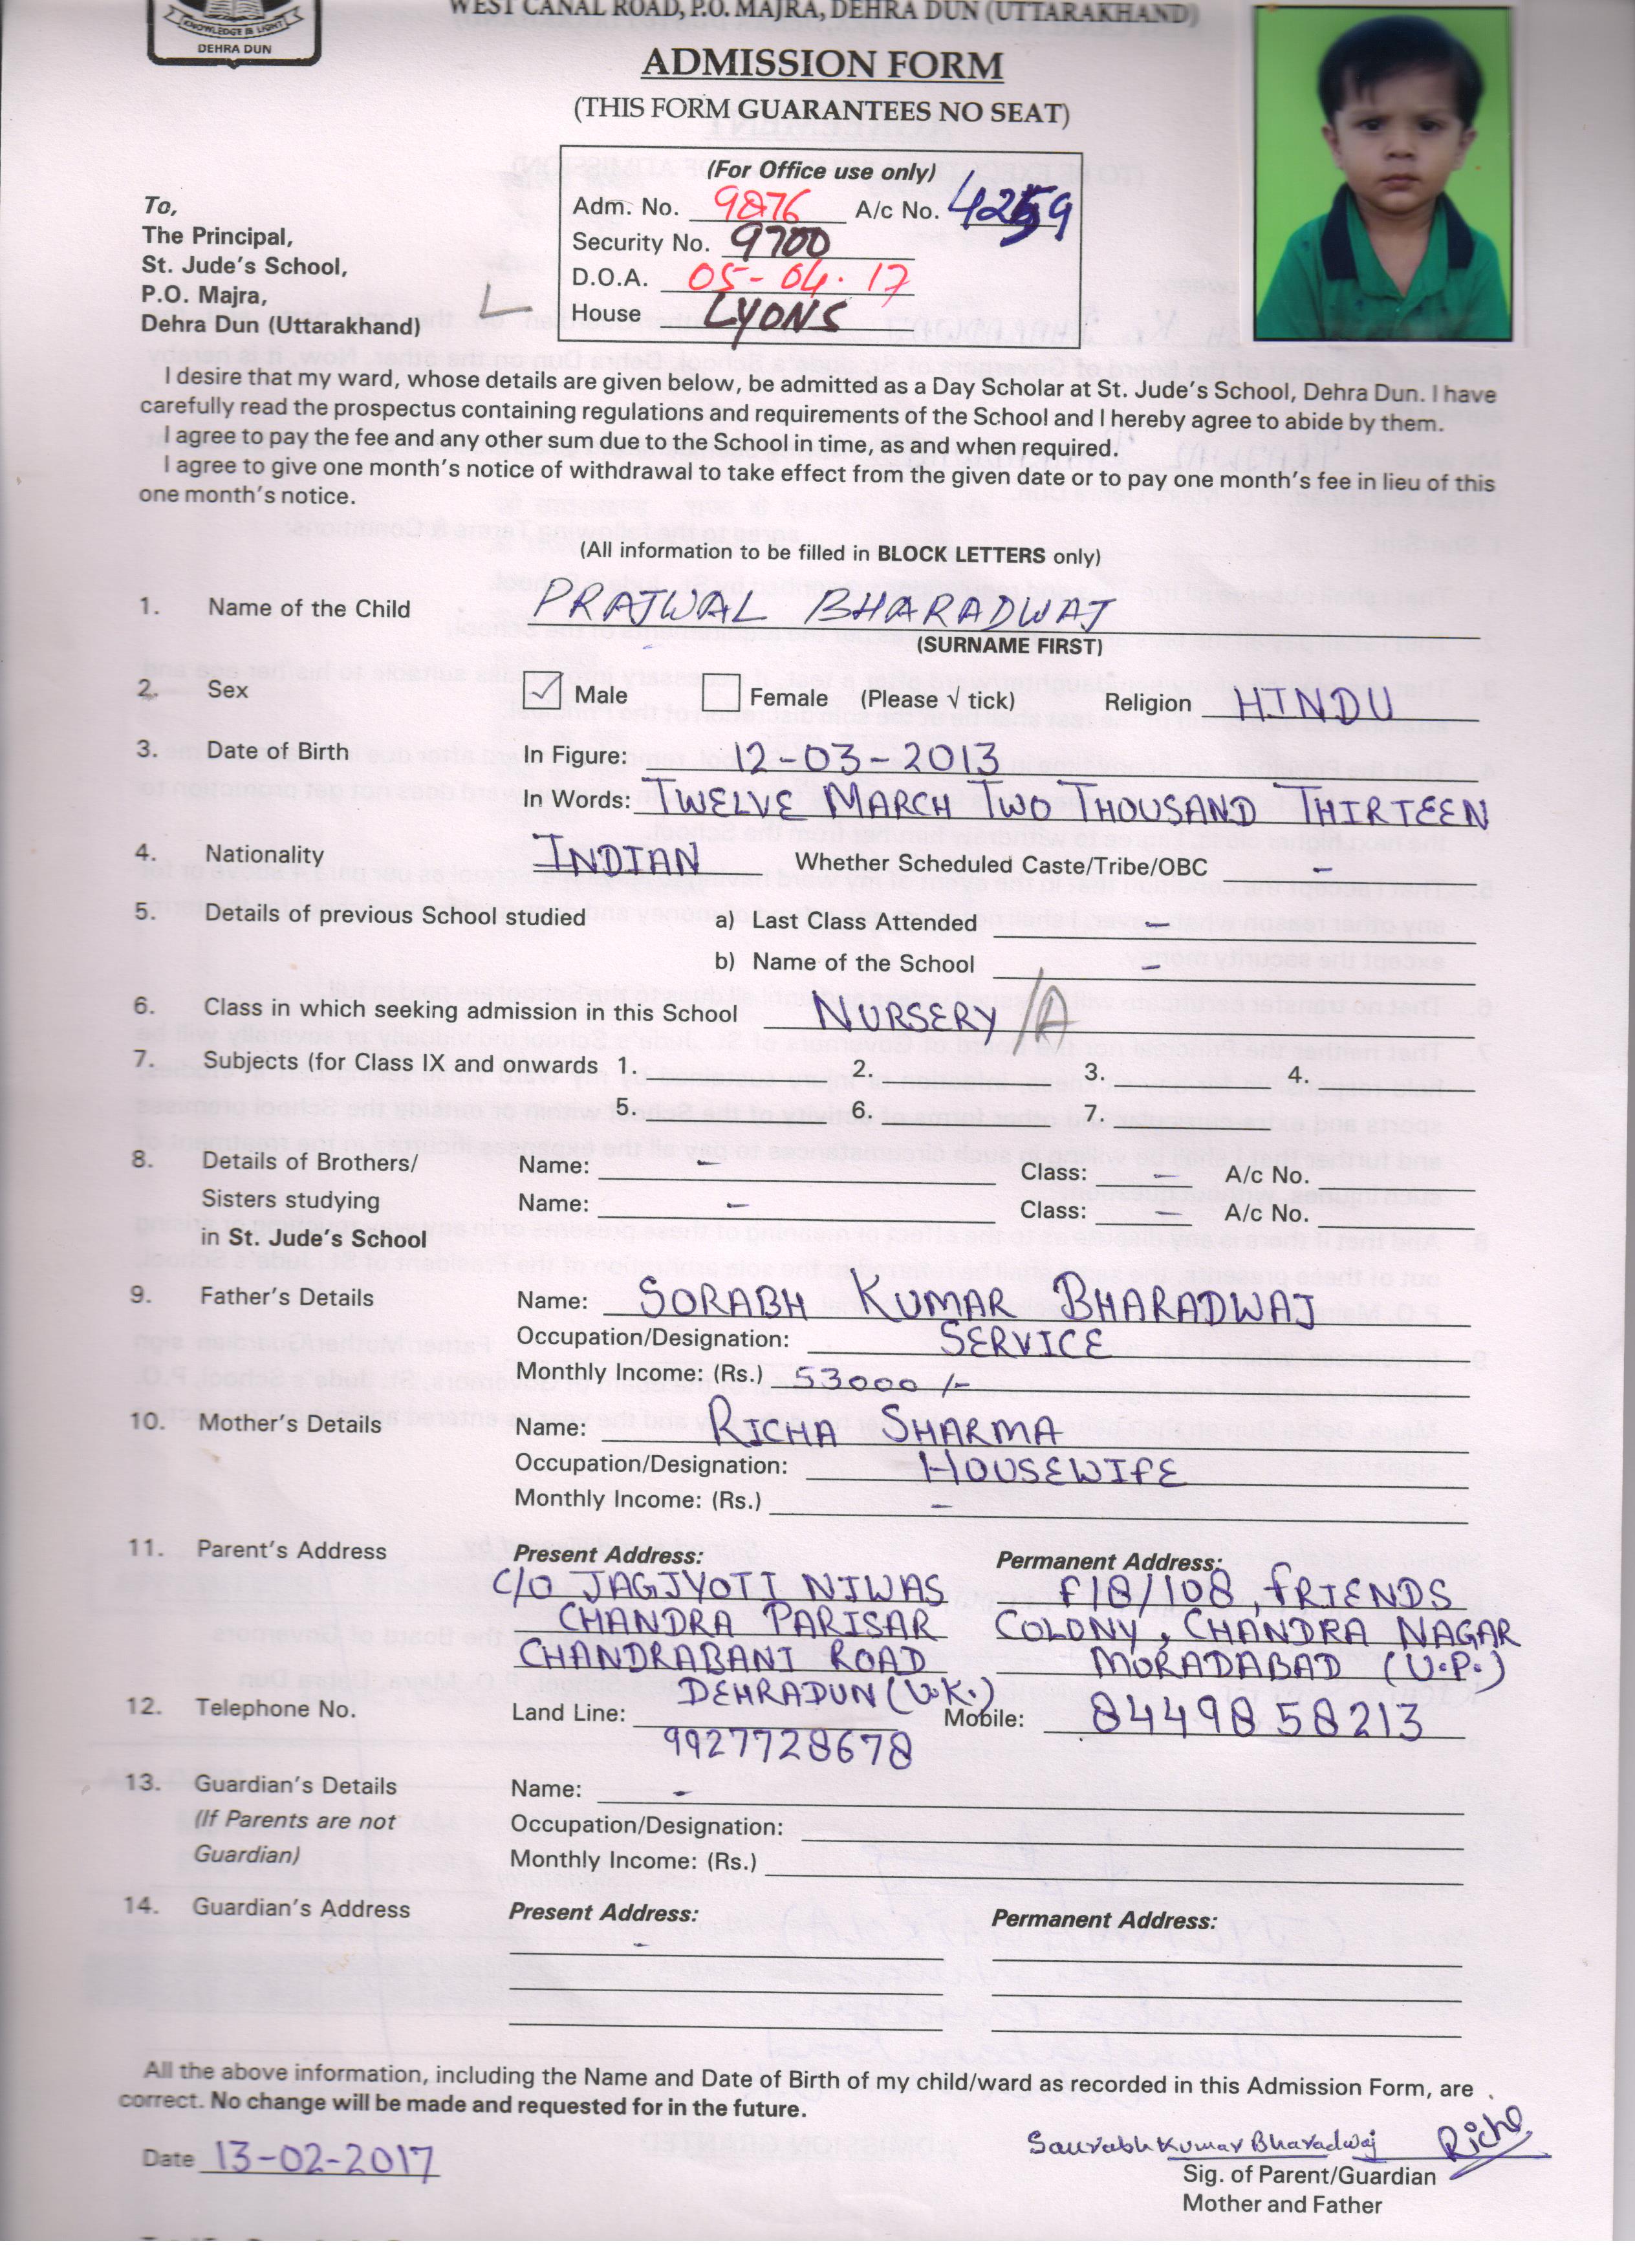 WEST CANAL ROAD, P.O. MAJRA, DEHRA DUN (UTTARAKHAND)
KNOWLEDGE IS LIGHT
DEHRA DUN
ADMISSION FORM
(THIS FORM GUARANTEES NO SEAT)
(For Office use only)
Adm. No. 9876 A/c No. 4259
Security No. 9700
D.O.A. 05-04.17
House LYONS
To,
The Principal,
St. Jude's School,
P.O. Majra,
Dehra Dun (Uttarakhand)
I desire that my ward, whose details are given below, be admitted as a Day Scholar at St. Jude's School, Dehra Dun. I have
carefully read the prospectus containing regulations and requirements of the School and I hereby agree to abide by them.
I agree to pay the fee and any other sum due to the School in time, as and when required.
I agree to give one month's notice of withdrawal to take effect from the given date or to pay one month's fee in lieu of this
one month's notice.
(All information to be filled in BLOCK LETTERS only)
1. Name of the Child PRAJWAL BHARADWAJ
(SURNAME FIRST)
2. Sex ✓ Male Female (Please √ tick) Religion HINDU
3. Date of Birth In Figure: 12-03-2013
In Words: TWELVE MARCH TWO THOUSAND THIRTEEN
4. Nationality INDIAN Whether Scheduled Caste/Tribe/OBC -
5. Details of previous School studied a) Last Class Attended -
b) Name of the School -
6. Class in which seeking admission in this School NURSERY /A
7. Subjects (for Class IX and onwards 1. 2. 3. 4.
5. 6. 7.
8. Details of Brothers/ Name: - Class: - A/c No.
Sisters studying Name: - Class: - A/c No.
in St. Jude's School
9. Father's Details Name: SORABH KUMAR BHARADWAJ
Occupation/Designation: SERVICE
Monthly Income: (Rs.) 53000/-
10. Mother's Details Name: RICHA SHARMA
Occupation/Designation: HOUSEWIFE
Monthly Income: (Rs.) -
11. Parent's Address Present Address: Permanent Address:
C/O JAGJYOTI NIWAS F18/108, FRIENDS
CHANDRA PARISAR COLONY, CHANDRA NAGAR
CHANDRABANI ROAD MORADABAD (U.P.)
DEHRADUN (U.K.)
12. Telephone No. Land Line: Mobile: 8449858213
9927728678
13. Guardian's Details Name: -
(If Parents are not Occupation/Designation:
Guardian) Monthly Income: (Rs.)
14. Guardian's Address Present Address: Permanent Address:
-
All the above information, including the Name and Date of Birth of my child/ward as recorded in this Admission Form, are
correct. No change will be made and requested for in the future.
Date 13-02-2017 Saurabh Kumar Bharadwaj Richa
Sig. of Parent/Guardian
Mother and Father